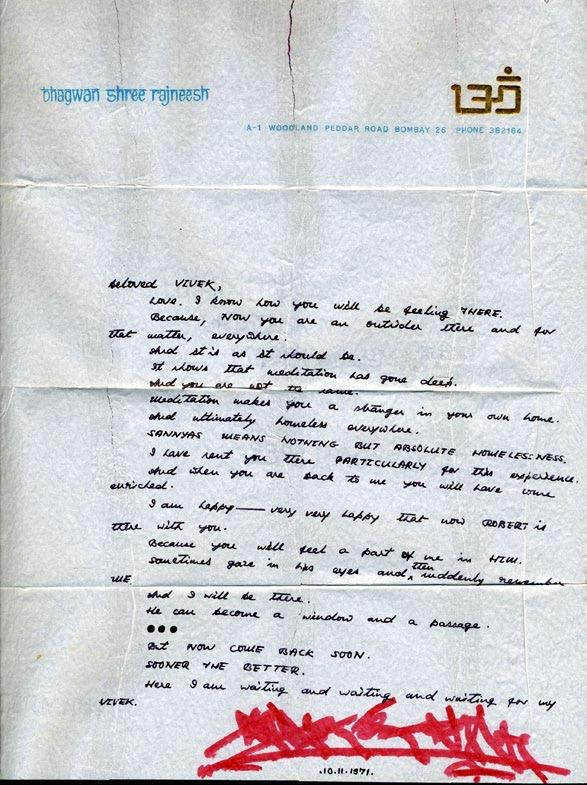 bhagwan shree rajneesh
A-1 WOODLAND PEDDAR ROAD BOMBAY 26 PHONE 382184
Beloved VIVEK,
Love. I know how you will be feeling THERE.
Because, NOW you are an outsider there and for
that matter, everywhere.
And it is as it should be.
It shows that meditation has gone deep.
And you are not the same.
Meditation makes you a stranger in your own home.
And ultimately homeless everywhere.
SANNYAS MEANS NOTHING BUT ABSOLUTE HOMELESSNESS.
I have sent you there PARTICULARLY for this experience.
And when you are back to me you will have come
enriched.
I am happy — very very happy that now ROBERT is
there with you.
Because you will feel a part of me in HIM.
Sometimes gaze in his eyes and then suddenly remember
ME
And I will be there.
He can become a window and a passage.
●●●
But NOW COME BACK SOON.
SOONER THE BETTER.
Here I am waiting and waiting and waiting for my
VIVEK.
.10.11.1971.